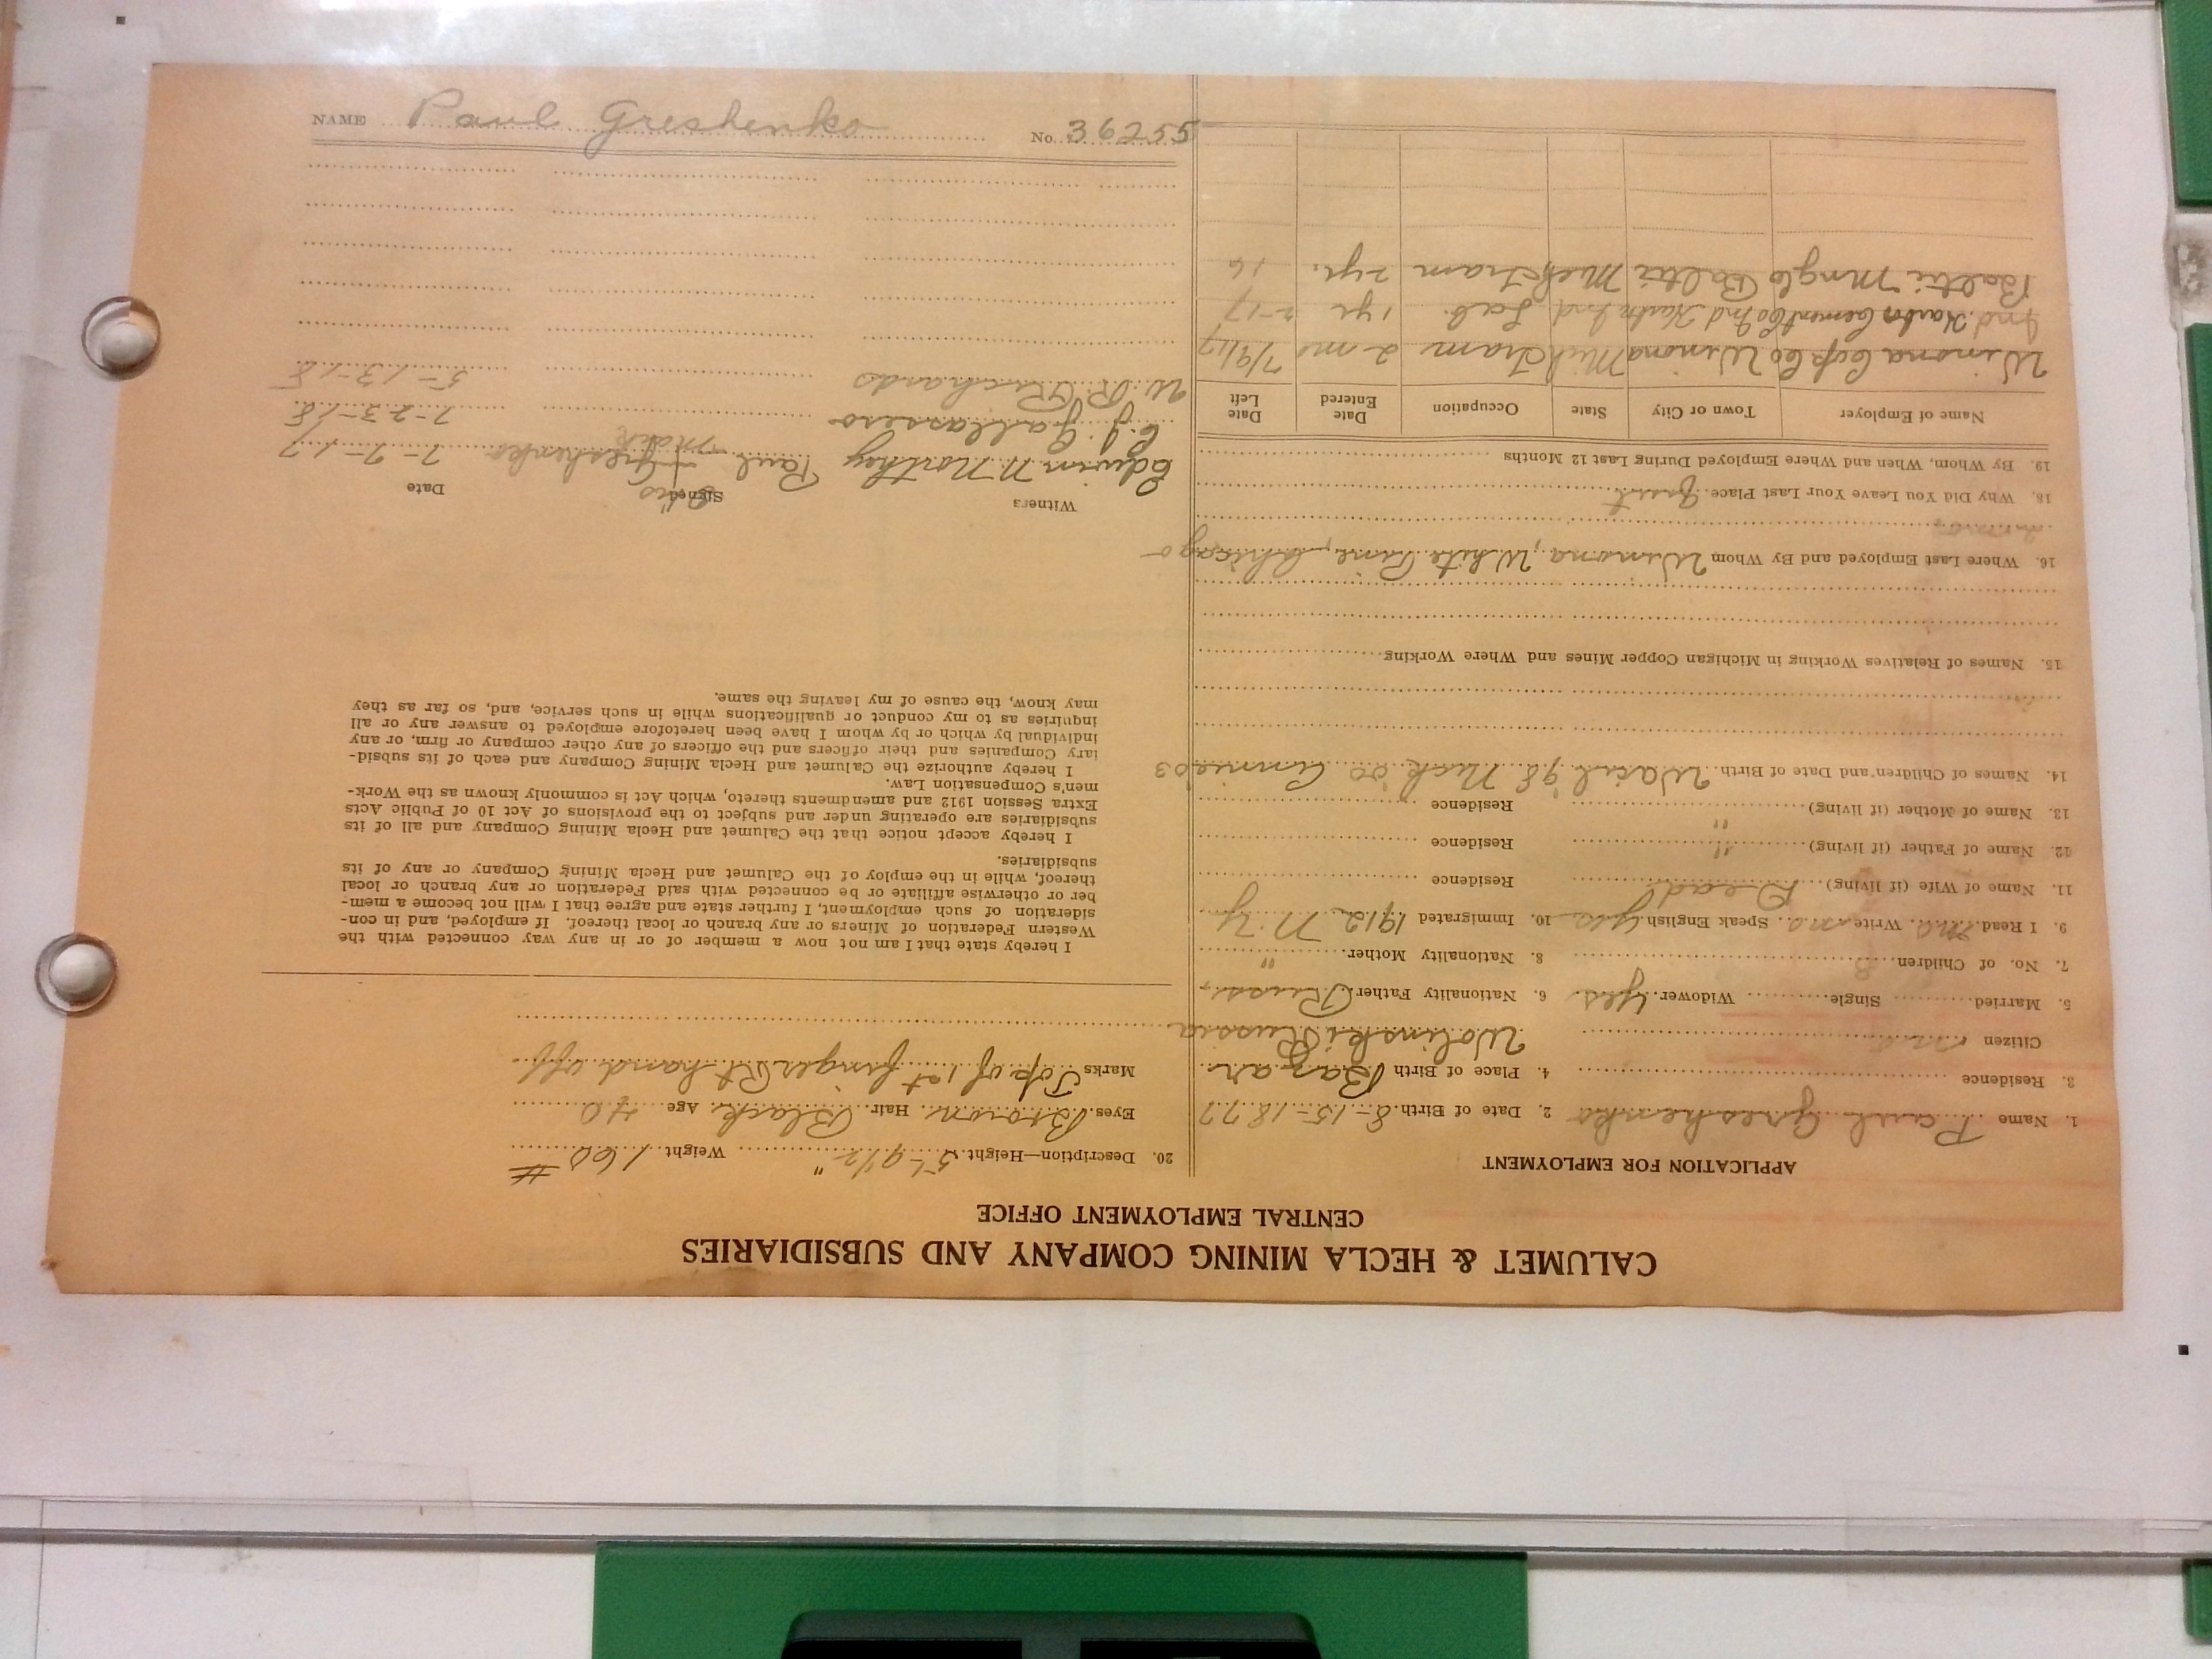 CALUMET & HECLA MINING COMPANY AND SUBSIDIARIES
CENTRAL EMPLOYMENT OFFICE
APPLICATION FOR EMPLOYMENT
1. Name Paul Greshenko 2. Date of Birth 8-15-1877
3. Residence 4. Place of Birth Bazar
Citizen no Wolinski Russia
5. Married Single Widower Yes. 6. Nationality Father Russ.
7. No. of Children 3 8. Nationality Mother "
9. I Read no. Write no. Speak English Yes 10. Immigrated 1912 N.Y.
11. Name of Wife (if living) Dead Residence
12. Name of Father (if living) " Residence
13. Name of Mother (if living) " Residence
14. Names of Children and Date of Birth Wacil 98 Nick 00 Annie 03
15. Names of Relatives Working in Michigan Copper Mines and Where Working
16. Where Last Employed and By Whom Winona, White Pine, Chicago
18. Why Did You Leave Your Last Place Quit
19. By Whom, When and Where Employed During Last 12 Months
Name of Employer Town or City State Occupation Date Entered Date Left
Winona Cop Co Winona Mich Tram 2 mo 7/9/17
Ind. Harbor Cement Co Ind Harbr Ind Lab. 1 yr 2-17
Baltic Mng Co Baltic Mich Tram 2 yr. 16
20. Description—Height 5'-9 1/2" Weight 160 #
Eyes Brown. Hair Black. Age 40
Marks Top of 1st finger Rt hand off
I hereby state that I am not now a member of or in any way connected with the
Western Federation of Miners or any branch or local thereof. If employed, and in con-
sideration of such employment, I further state and agree that I will not become a mem-
ber or otherwise affiliate or be connected with said Federation or any branch or local
thereof, while in the employ of the Calumet and Hecla Mining Company or any of its
subsidiaries.
I hereby accept notice that the Calumet and Hecla Mining Company and all of its
subsidiaries are operating under and subject to the provisions of Act 10 of Public Acts
Extra Session 1912 and amendments thereto, which Act is commonly known as the Work-
men's Compensation Law.
I hereby authorize the Calumet and Hecla Mining Company and each of its subsid-
iary Companies and their officers and the officers of any other company or firm, or any
individual by which or by whom I have been heretofore employed to answer any or all
inquiries as to my conduct or qualifications while in such service, and, so far as they
may know, the cause of my leaving the same.
Witness Signed Date
his
Edwin N Northey Paul + Greshenko 7-9-17
mark
C. J. Gallassero 7-23-18
W. R. Richards 5-13-18
NAME Paul Greshenko No. 36255